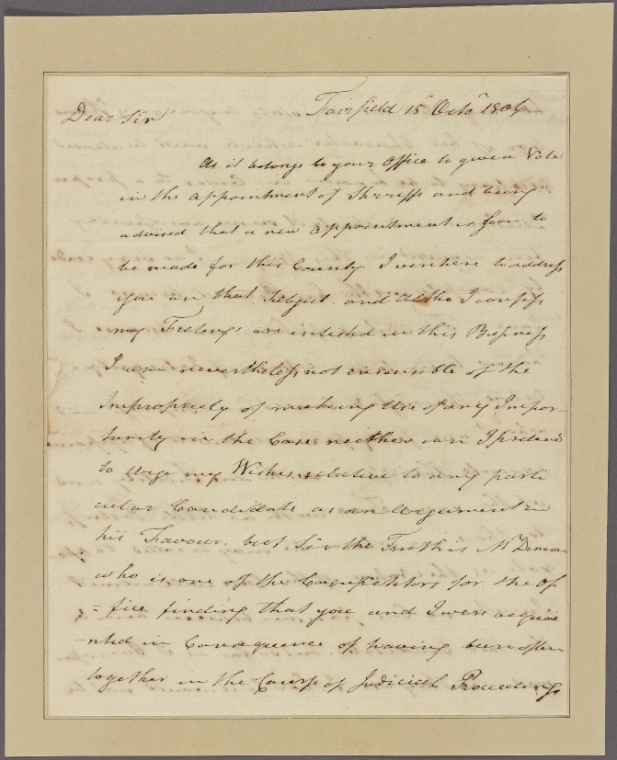 Fairfield 15th Octor 1806
Dear Sir
As it belongs to your Office to give a Vote
in the appointment of Sherriffs and being
advised that a new appointment is soon to
be made for this County I venture to address
you on that Subject and altho I confess
my Feelings are intrested in this Business
I am nevertheless not insensible of the
Impropriety of making Use of any Impor-
tunity in the Case neither can I pretend
to Urge my Wishes relative to any parti
cular Candidate as an Argument in
his Favour. but Sir the Truth is Mr
who is one of the Competitors for the Of
=fice finding that you and I were acquai
nted in Consequence of having been often
together in the Course of Judicial Proceedings